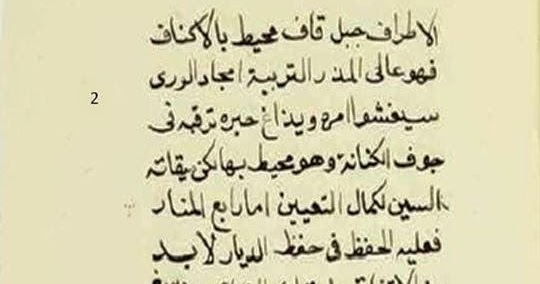 الاطراف جبل قاف محيط بالاكناف
فهو عالى المذر التربية امجاد الورى
2
سيفشوا امره ويذاع خبره ترقبه فى
جوف الكنانة وهو محيط بها لكن يقاته
السين لكمال التعيين اما رابع المنار
فعليه الحفظ فى حفظ الديار لابد